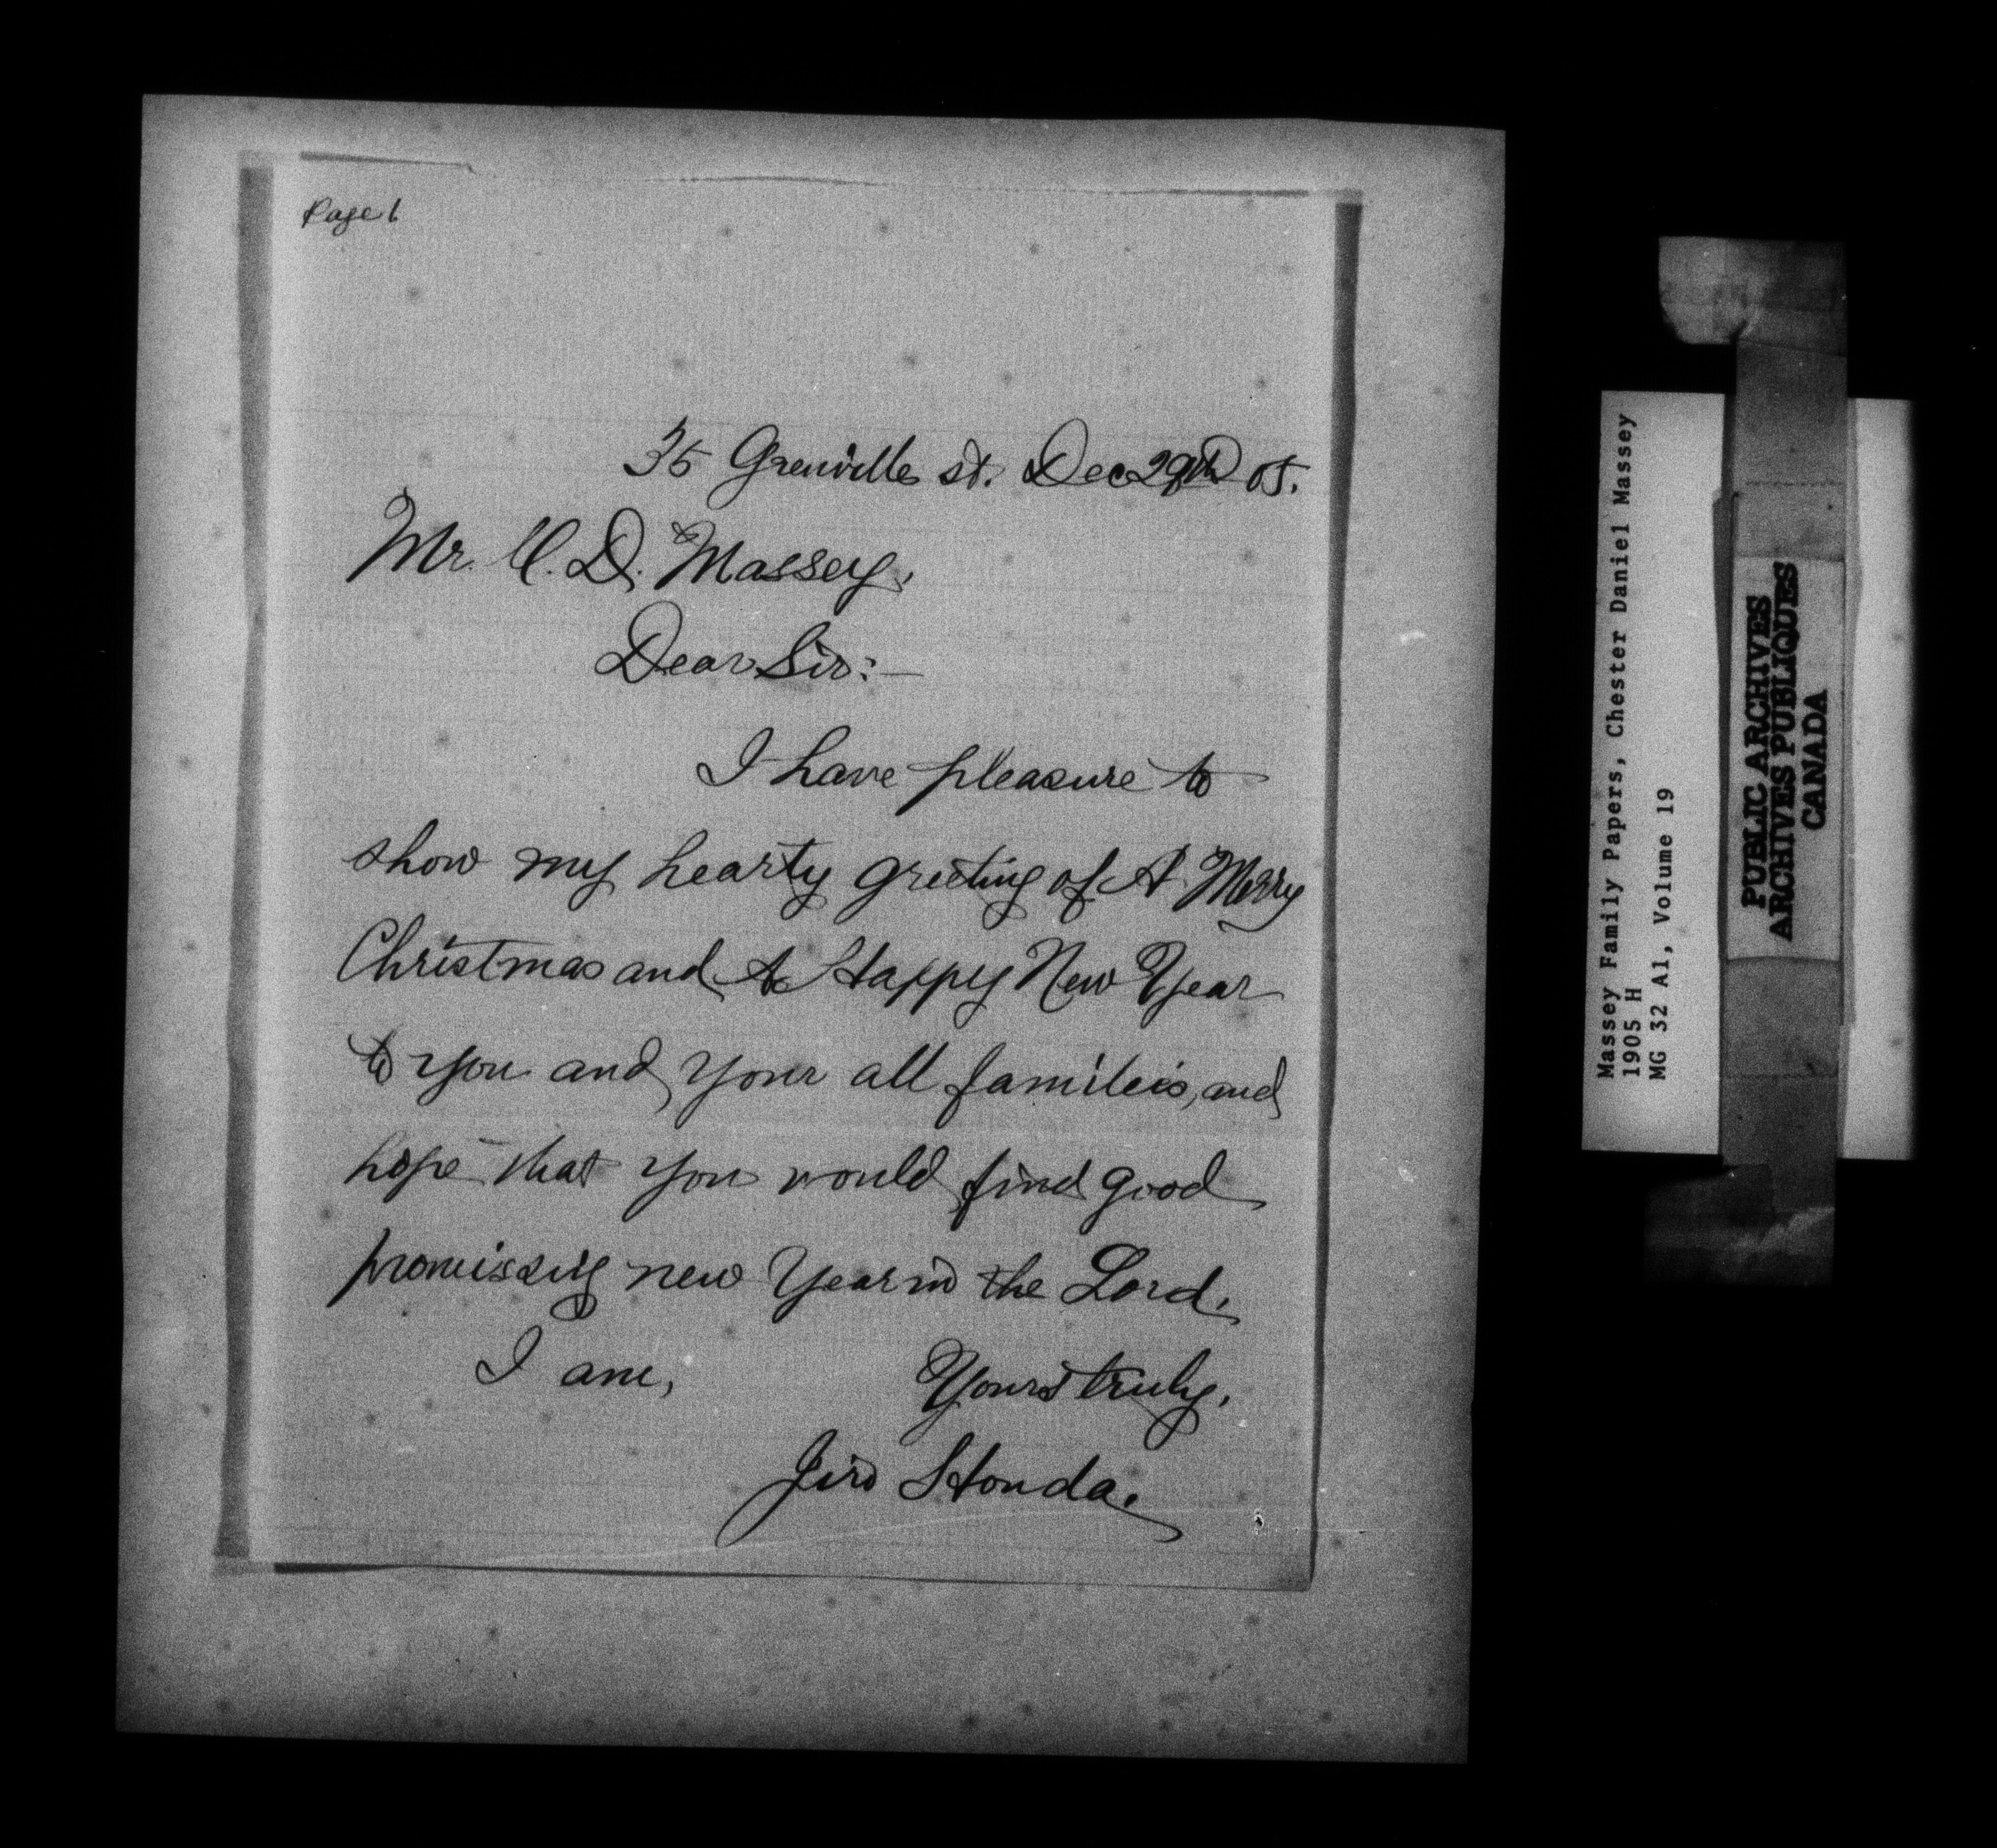 Page 1
35 Grenville st. Dec 29th 05.
Mr. C. D. Massey,
Dear Sir:—
I have pleasure to
show my hearty greeting of A Merry
Christmas and A Happy New Year
to you and your all famileis, and
hope that you would find good
promissing new Year in the Lord.
I am,
Yours truly,
Jiro Honda.
Massey Family Papers, Chester Daniel Massey
1905 H
MG 32 A1, Volume 19
PUBLIC ARCHIVES
ARCHIVES PUBLIQUES
CANADA